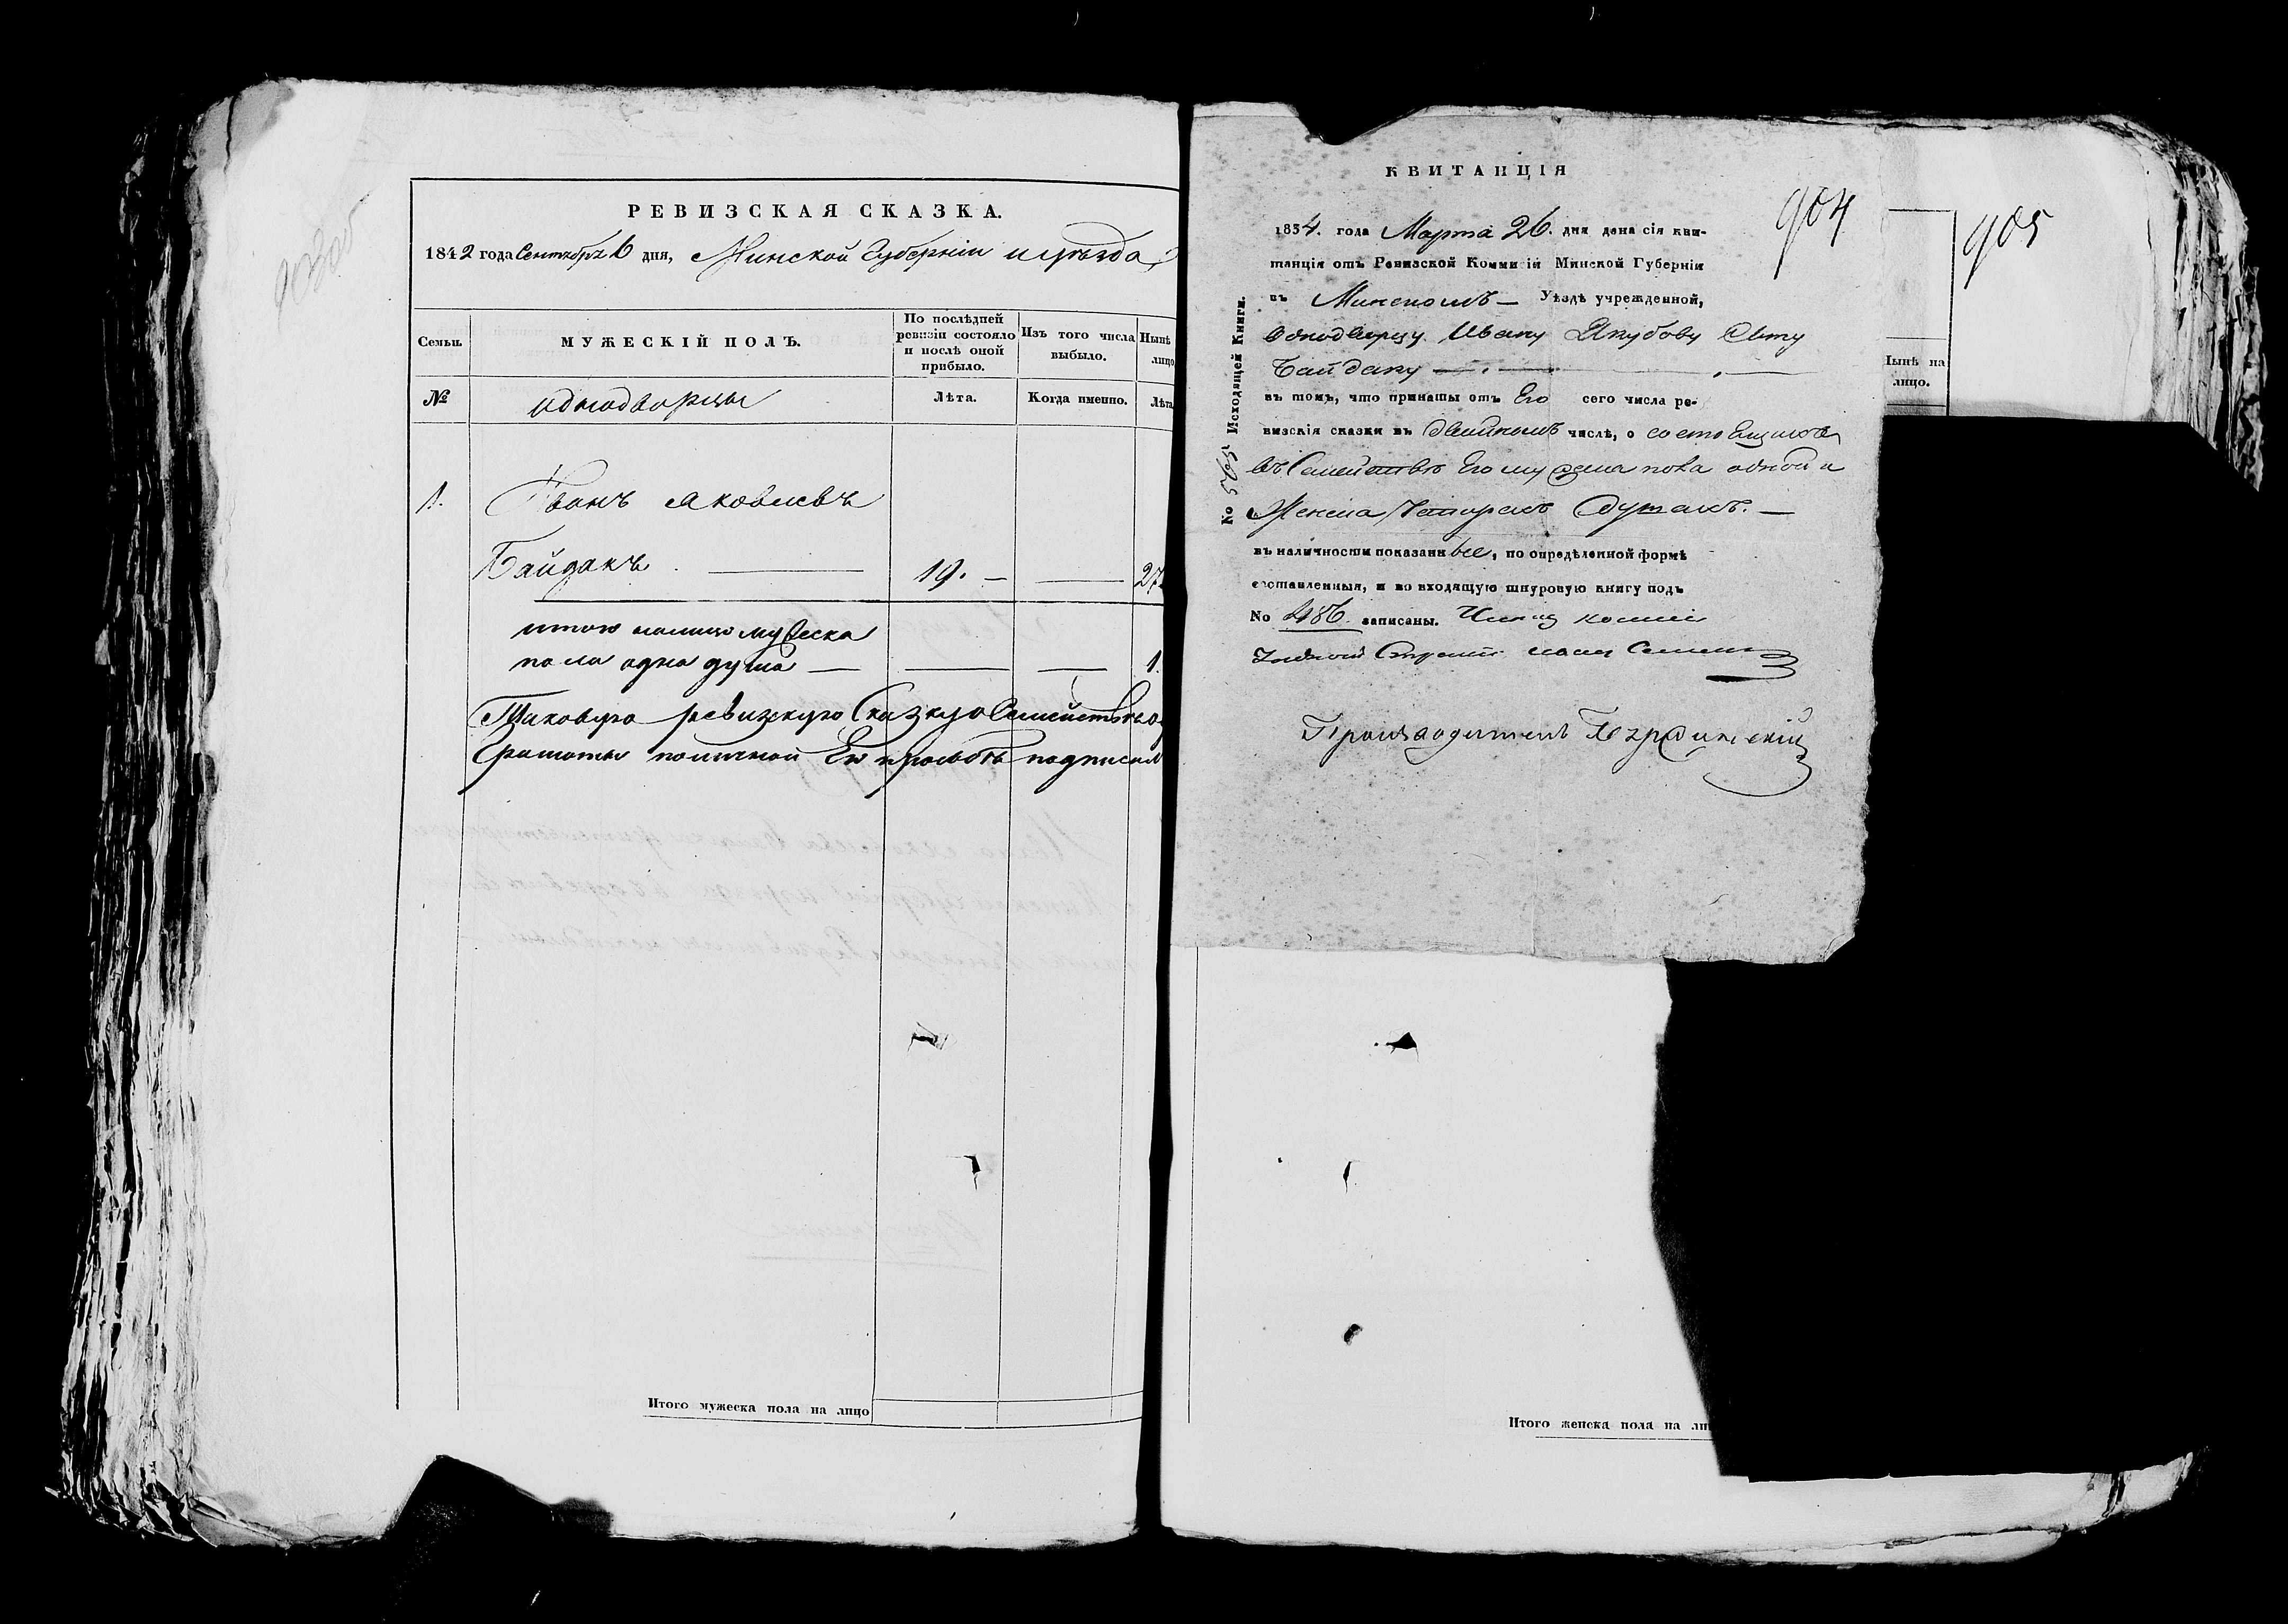 РЕВИЗСКАЯ СКАЗКА.
1842 года Сентября 6 дня, Минской Губерніи и уѣзда
Семьи.
МУЖЕСКІЙ ПОЛЪ.
По послѣдней ревизіи состояло и послѣ оной прибыло.
Изъ того числа выбыло.
Нынѣ лицо
№
однодворцы
Лѣта.
Когда именно.
Лѣта
1. Иванъ Яковлевъ
Байдакъ. 19. 27
итого налицо мужеска
пола одна душа 1.
Таковую ревизскую Сказку о Семействѣ
Грамоты по личной Его прозьбѣ подписалъ
Итого мужеска пола на лицо
КВИТАНЦІЯ
904
1834. года Марта 26. дня дана сія кви-
танція отъ Ревизской Коммисіи Минской Губерніи
въ Минскомъ Уѣздѣ учрежденной,
Однодворцу Ивану Якубову Сыну
Байдаку
въ томъ, что приняты отъ Его сего числа ре-
визскія сказки въ двойномъ числѣ, о состоящихъ
въ Семействѣ Его мужеска пола одной и
Женска Четырехъ Душахъ.
въ наличности показанные, по опредѣленной формѣ
составленныя, и во входящую шнуровую книгу подъ
No 486. записаны.
Производитель
Ко Исходящей Книги.
905
Нынѣ на лицо.
Итого женска пола на ли